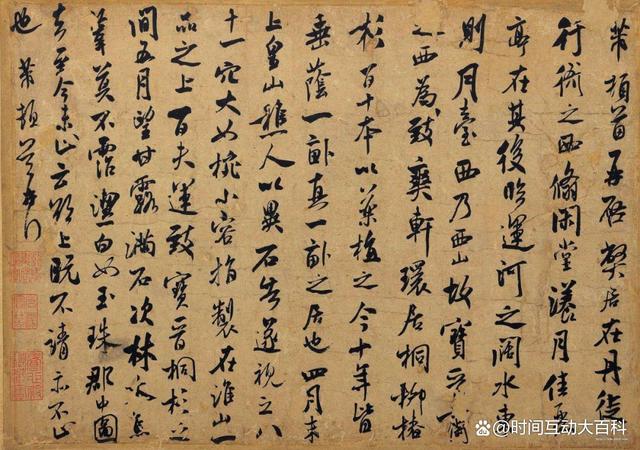 芾頓首再啟弊居在丹徒
行衙之西翛閑堂漾月佳麗
亭在其後臨運河之闊水東
則月臺西乃西山故寶晉齋
之西為致爽軒環居桐柳椿
杉百十本以藥植之今十年皆
垂蔭一畝真一畝之居也四月末
上皇山樵人以異石告遂視之八
十一穴大如椀小容指製在淮山一
品之上百夫運致寶晉桐杉之
間五月望甘露滿石次林木焦
葦莫不霑 白如玉珠郡中圖
去至今未止云欲上既不請亦不止
也芾頓首
@时间互动大百科